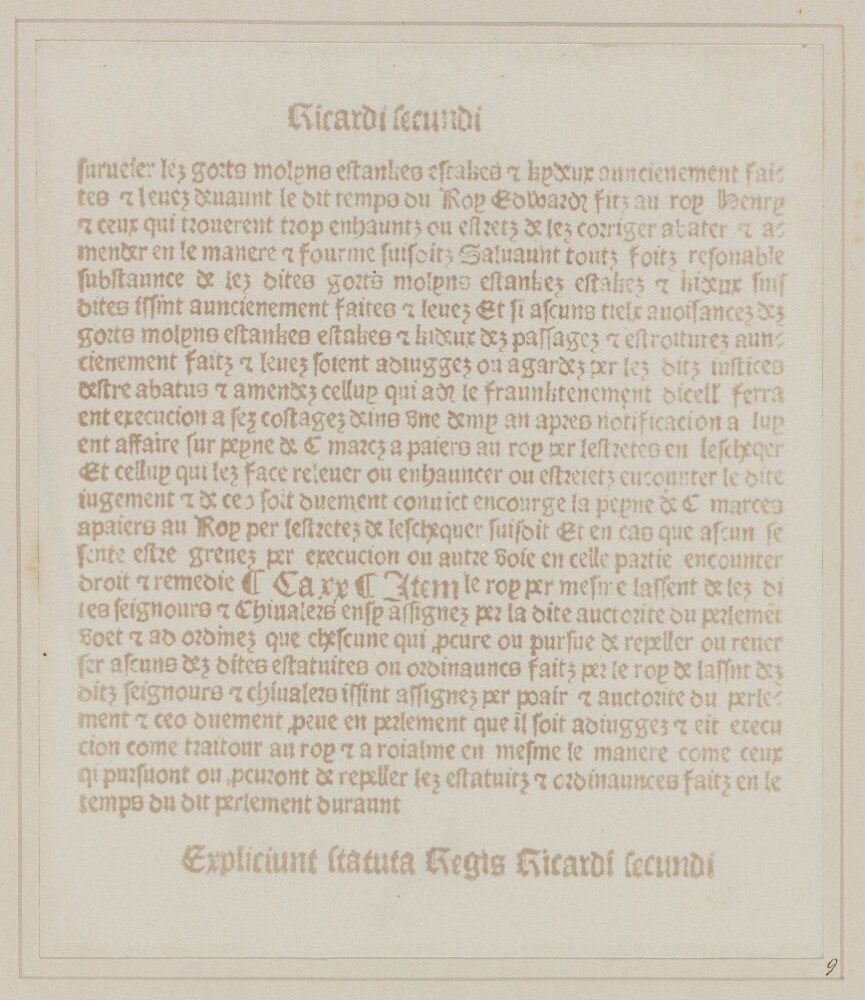 Ricardi secundi
surueier lez gortz molyns estankes estakes ⁊ kydeux auncienement fai⸗
tes ⁊ leuez deuaunt le dit temps du Roy Edward fitz au roy Henry
⁊ ceux qui trouerent trop enhauntz ou estretz de lez corriger abater ⁊ a⸗
mender en le manere ⁊ fourme suisoitz Saluaunt toutz foitz resonable
substaunce de lez dites gorts molyns estankez estakez ⁊ kideux suis
dites issint auncienement faites ⁊ leuez Et si ascuns tielx anoisancez dez
gorts molyns estankes estakes ⁊ kideux dez passagez ⁊ estroiturez aun⸗
cienement faitz ⁊ leuez soient adiuggez ou agardez per lez ditz iustices
destre abatus ⁊ amendez celluy qui ad le fraunktenement dicell ferra
ent execucion a sez costagez deins vne demy an apres notificacion a luy
ent affaire sur peyne de C marcz a paiers au roy per lestretes en lescheqer
Et celluy qui lez face releuer ou enhauncer ou estreietz encounter le dite
iugement ⁊ de ceo soit duement conuict encourge la peyne de C marces
apaiers au Roy per lestretez de leschequer suisdit Et en cas que ascun se
sente estre greuez per execucion ou autre voie en celle partie encounter
droit ⁊ remedie ¶ Ca xx ¶ Item le roy per mesme lassent de lez di
tes seignours ⁊ Chiualers ensy assignez per la dite auctorite du perlemēt
voet ⁊ ad ordinez que chescune qui ꝓcure ou pursue de repeller ou reuer
ser ascuns dez dites estatuites ou ordinauncs faitz per le roy de lassnt dez
ditz seignours ⁊ chiualers issint assignez per poair ⁊ auctorite du perle⸗
ment ⁊ ceo duement ꝓeue en perlement que il soit adiuggez ⁊ eit execu
cion come traitour au roy ⁊ a roialme en mesme le manere come ceux
qi pursuont ou ꝓcuront de repeller lez estatuitz ⁊ ordinaunces faitz en le
temps du dit perlement duraunt
Expliciunt statuta Regis Ricardi secundi
9